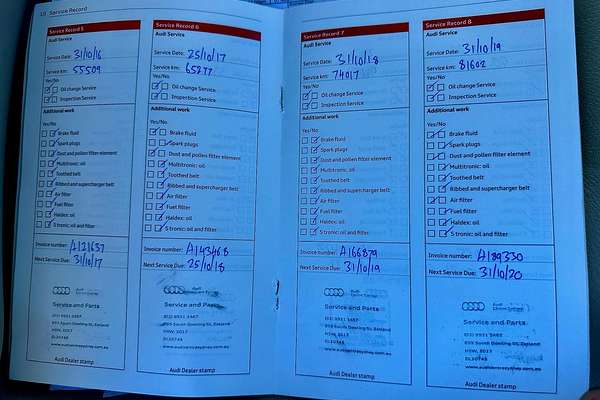 10 Service Record
Service Record 5
Audi Service
Service Date: 31/10/16
Service km: 55509
Yes/No
Oil change Service
Inspection Service
Additional work
Yes/No
Brake fluid
Spark plugs
Dust and pollen filter element
Multitronic: oil
Toothed belt
Ribbed and supercharger belt
Air filter
Fuel filter
Haldex: oil
S tronic: oil and filter
Invoice number: A121637
Next Service Due: 31/10/17
Audi
Service and Parts
(02) 9931 3487
895 South Dowling St, Zetland
NSW, 2017
Audi Dealer stamp
Service Record 6
Audi Service
Service Date: 25/10/17
Service km: 65277
Yes/No
Oil change Service
Inspection Service
Additional work
Yes/No
Brake fluid
Spark plugs
Dust and pollen filter element
Multitronic: oil
Toothed belt
Ribbed and supercharger belt
Air filter
Fuel filter
Haldex: oil
S tronic: oil and filter
Invoice number: A143468
Next Service Due: 25/10/18
Audi
Service and Parts
895 South Dowling St, Zetland
NSW, 2017
www.audicentresydney.com.au
Audi Dealer stamp
Service Record 7
Audi Service
Service Date: 31/10/18
Service km: 74017
Yes/No
Oil change Service
Inspection Service
Additional work
Yes/No
Brake fluid
Spark plugs
Dust and pollen filter element
Multitronic: oil
Toothed belt
Ribbed and supercharger belt
Air filter
Fuel filter
Haldex: oil
S tronic: oil and filter
Invoice number: A166879
Next Service Due: 31/10/19
Audi
Service and Parts
895 South Dowling St, Zetland
NSW, 2017
www.audicentresydney.com.au
Audi Dealer stamp
Service Record 8
Audi Service
Service Date: 31/10/19
Service km: 81602
Yes/No
Oil change Service
Inspection Service
Additional work
Yes/No
Brake fluid
Spark plugs
Dust and pollen filter element
Multitronic: oil
Toothed belt
Ribbed and supercharger belt
Air filter
Fuel filter
Haldex: oil
S tronic: oil and filter
Invoice number: A189330
Next Service Due: 31/10/20
Audi
Service and Parts
895 South Dowling St, Zetland
NSW, 2017
www.audicentresydney.com.au
Audi Dealer stamp